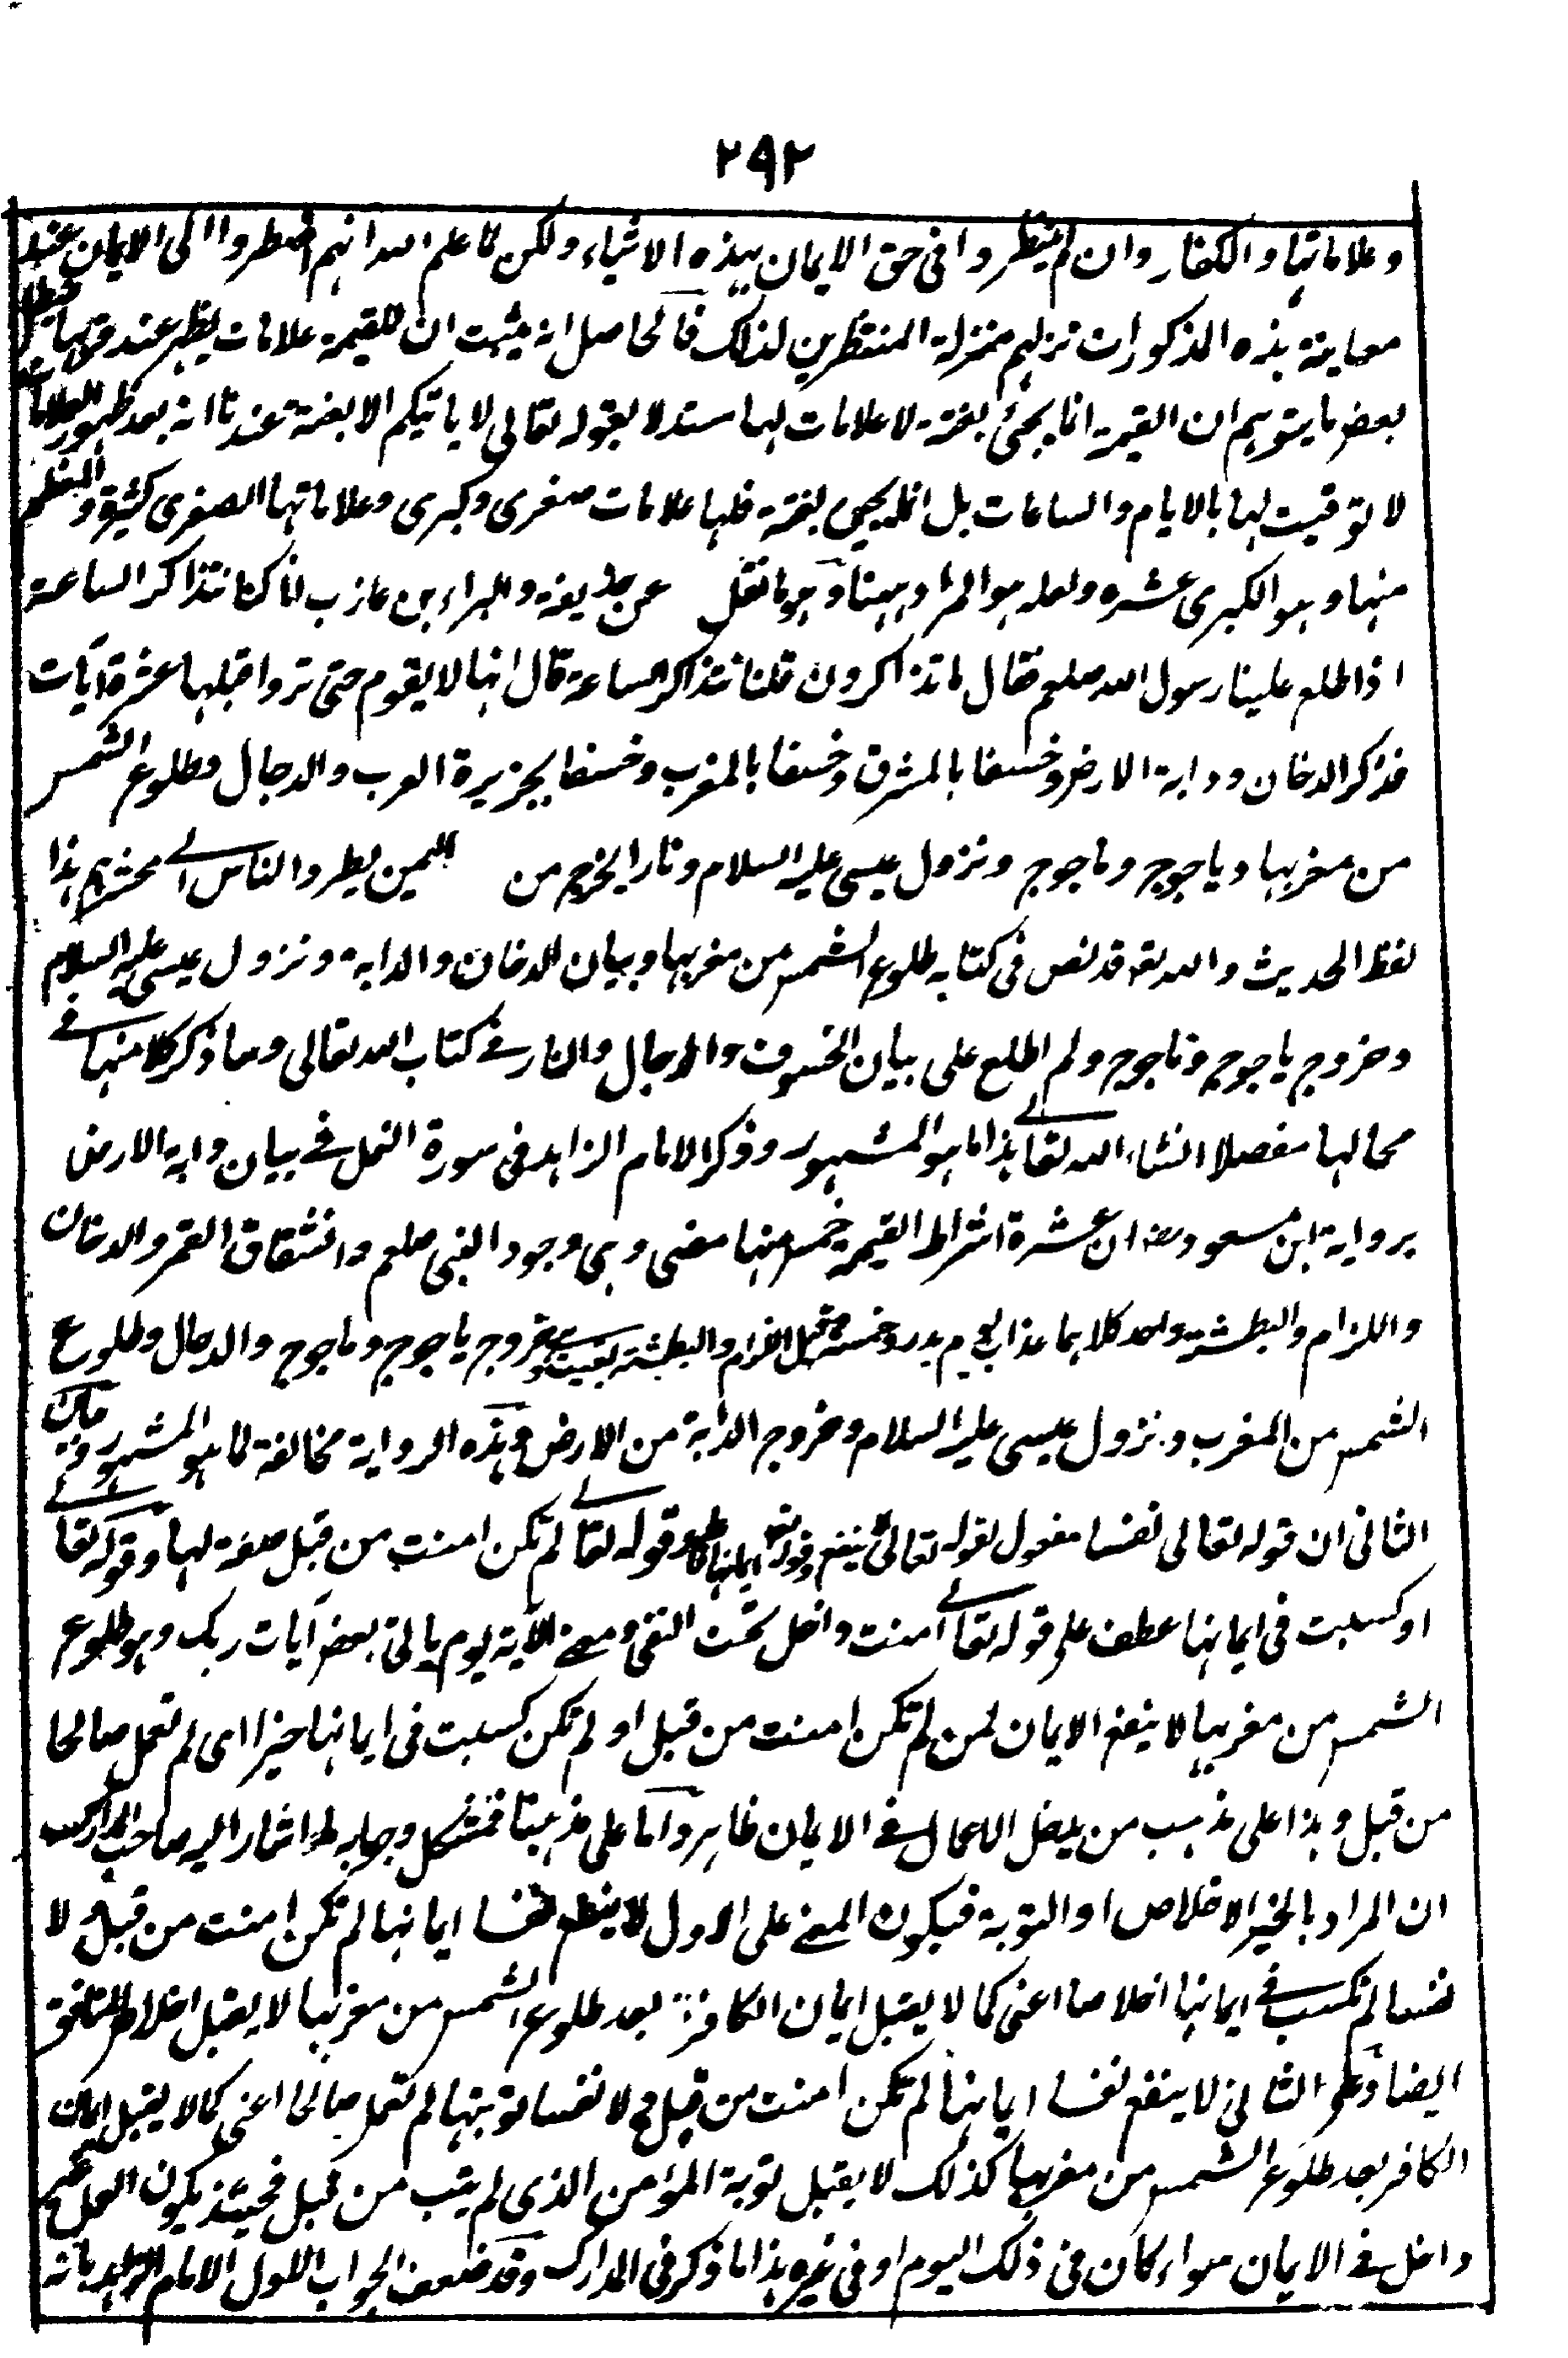 ٢٩٢
وعلاماتها والكفار وان لم ينتظروا فى حق الايمان بهذه الاشياء ولكن لما علم الله انهم اضطروا الى الايمان عند
معاينة هذه المذكورات نزلهم منزلة المنتظرين لذلك فالحاصل انه يثبت ان للقيمة علامات يظهر عند قربها
بعض ما يتوهم ان القيمة انما يجئ بغتة لا علامات لها مستدلا بقوله تعالى لا ياتيكم الا بغتة عندنا انه بعد ظهور العلامات
لا توقيت لها بالايام والساعات بل انما يجئ بغتة فلها علامات صغرى وكبرى وعلاماتها الصغرى كثيرة والعظم
منها وهو الكبرى عشره ولعله هو المراد ههنا وهو ما نقل عن حذيفة والبراء بن عازب لما كنا نتذاكر الساعة
اذا طلع علينا رسول الله صلعم فقال ما تذاكرون قلنا نتذاكر الساعة قال انها لا يقوم حتى تروا قبلها عشرة آيات
فذكر الدخان ودابة الارض وخسفا بالمشرق وخسفا بالمغرب وخسفا بجزيرة العرب والدجال وطلوع الشمس
من مغربها وياجوج وماجوج ونزول عيسى عليه السلام ونارا يخرج من اليمن يطرد الناس الى محشرهم هذا
لفظ الحديث والله تعـ قد نص فى كتابه طلوع الشمس من مغربها وبيان الدخان والدابة ونزول عيسى عليه السلام
وخروج ياجوج وماجوج ولم اطلع على بيان الخسوف والدجال والنار فى كتاب الله تعالى وساذكر كلا منها فى
محالها مفصلا انشاء الله تعالى هذا ما هو المشهور وذكر الامام الزاهد فى سورة النمل فى بيان دابة الارض
برواية ابن مسعود رضـ ان عشرة اشراط القيمة خمس منها مضى وهى وجود النبى صلعم وانشقاق القمر والدخان
واللزام والبطشة واحد كلاهما عذاب يوم بدر وخمسة قبل اللزام والبطشة بقيت وهى خروج ياجوج وماجوج والدجال وطلوع
الشمس من المغرب ونزول عيسى عليه السلام وخروج الدابة من الارض وهذه الرواية مخالفة لما هو المشهور
الثانى ان قوله تعالى نفسا مفعول لقوله تعالى ينفع وقوله تعـ ايمانها فاعله وقوله تعالى لم تكن امنت من قبل صفة لها وقوله تعالى
او كسبت فى ايمانها عطف على قوله تعالى امنت داخل تحت النفى ومعنى الآية يوم ياتى بعض آيات ربك وهو طلوع
الشمس من مغربها لا ينفع الايمان لمن لم تكن امنت من قبل او لم تكن كسبت فى ايمانها خيرا اى لم تعمل صالحا
من قبل وهذا على مذهب من يدخل الاعمال فى الايمان ظاهر واما على مذهبنا فمشكل وجوابه ما اشار اليه صاحب المدارك
ان المراد بالخير الاخلاص او التوبة فيكون المعنى على الاول لا ينفع نفسا ايمانها لم تكن امنت من قبل ولا
نفسا لم تكسب فى ايمانها اخلاصا اعنى كما لا يقبل ايمان الكافر بعد طلوع الشمس من مغربها لا يقبل اخلاص المنافق
ايضا وعلى الثانى لا ينفع نفسا ايمانها لم تكن امنت من قبل ولا نفسا توبتها لم تعمل صالحا اعنى كما لا يقبل ايمان
الكافر بعد طلوع الشمس من مغربها كذلك لا يقبل توبة المؤمن الذى لم يتب من قبل فحينئذ يكون العمل غير
داخل فى الايمان سواء كان فى ذلك اليوم او فى غيره هذا ما ذكر فى المدارك وقد ضعف الجواب الاول الامام الزاهد بانه